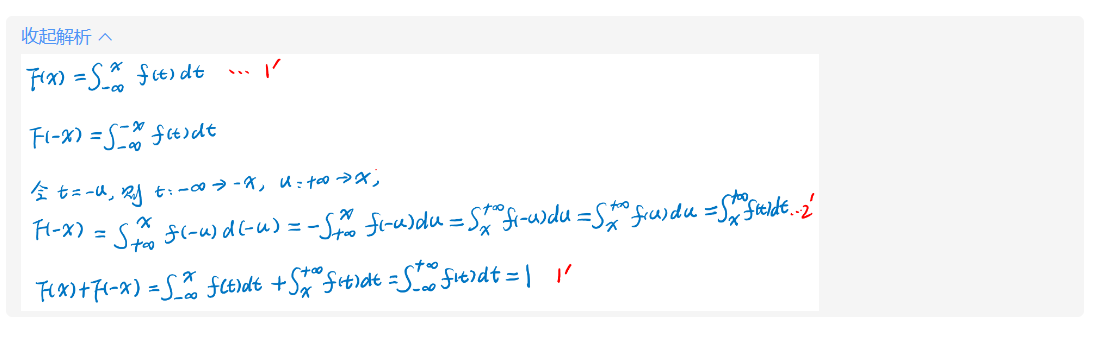 收起解析 ︿
F(x) = ∫_{-∞}^{x} f(t) dt ... 1'
F(-x) = ∫_{-∞}^{-x} f(t) dt
令 t = -u, 则 t: -∞ → -x, u: +∞ → x;
F(-x) = ∫_{+∞}^{x} f(-u) d(-u) = -∫_{+∞}^{x} f(-u) du = ∫_{x}^{+∞} f(-u) du = ∫_{x}^{+∞} f(u) du = ∫_{x}^{+∞} f(t) dt ... 2'
F(x) + F(-x) = ∫_{-∞}^{x} f(t) dt + ∫_{x}^{+∞} f(t) dt = ∫_{-∞}^{+∞} f(t) dt = 1 1'